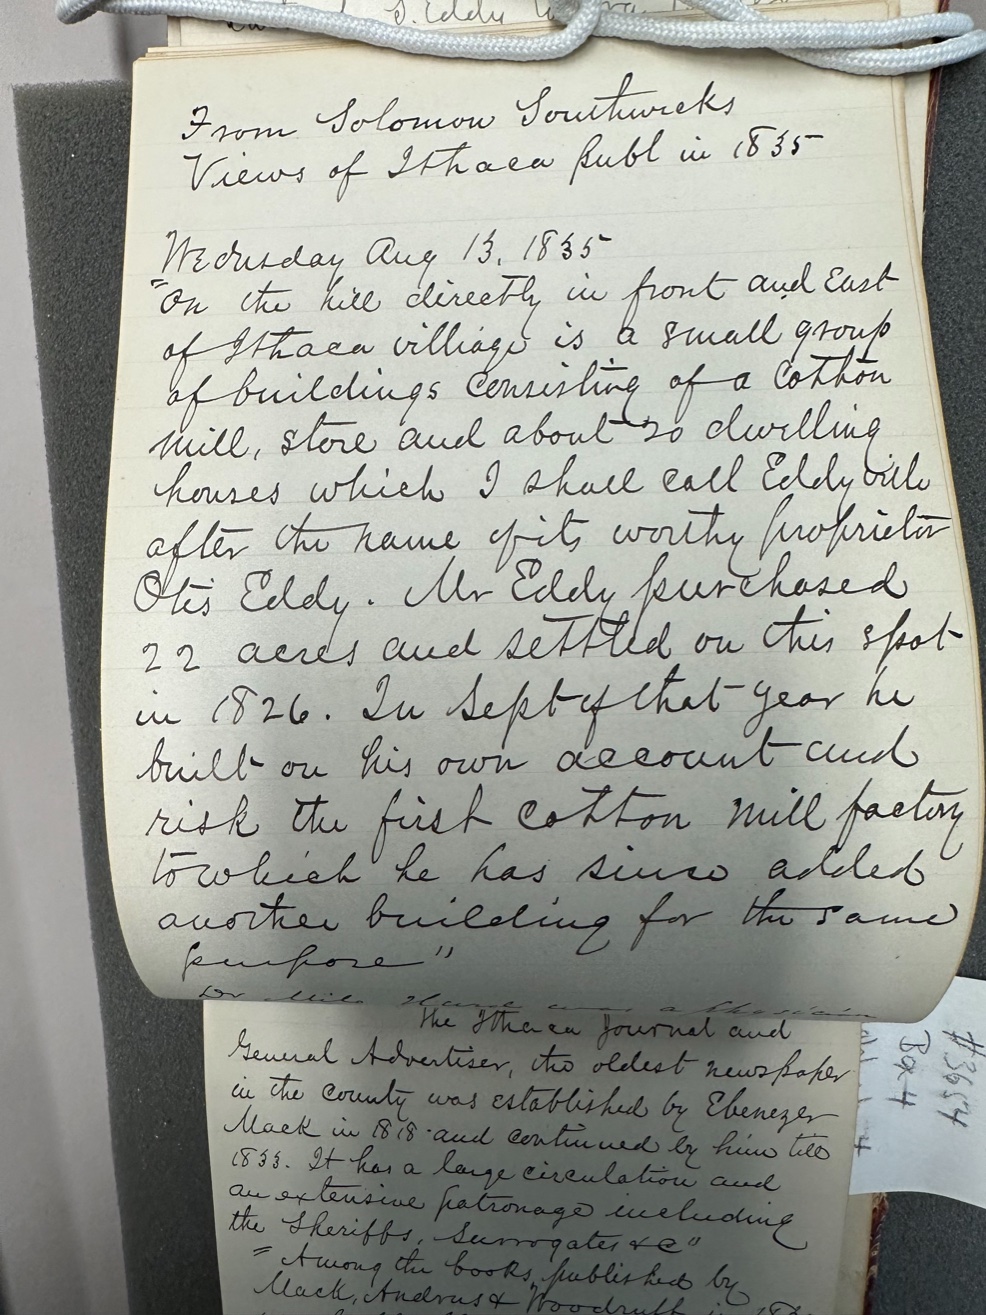 S. Eddy
From Solomon Southwicks
Views of Ithaca publ in 1835
Wednesday Aug 13, 1835
"On the hill directly in front and East
of Ithaca villiage is a small group
of buildings consisting of a cotton
mill, store and about 20 dwelling
houses which I shall call Eddyville
after the name of its worthy proprietor
Otis Eddy. Mr Eddy purchased
22 acres and settled on this spot
in 1826. In Sept of that year he
built on his own account and
risk the first cotton mill factory
to which he has since added
another building for the same
purpose"
Dr was a
The Ithaca Journal and
General Advertiser, the oldest newspaper
in the county was established by Ebenezer
Mack in 1818 and continued by him till
1833. It has a large circulation and
an extensive patronage including
the Sheriffs, Surrogates &c"
"Among the books published by
Mack, Andrus & Woodruff in
#3654
Box 4